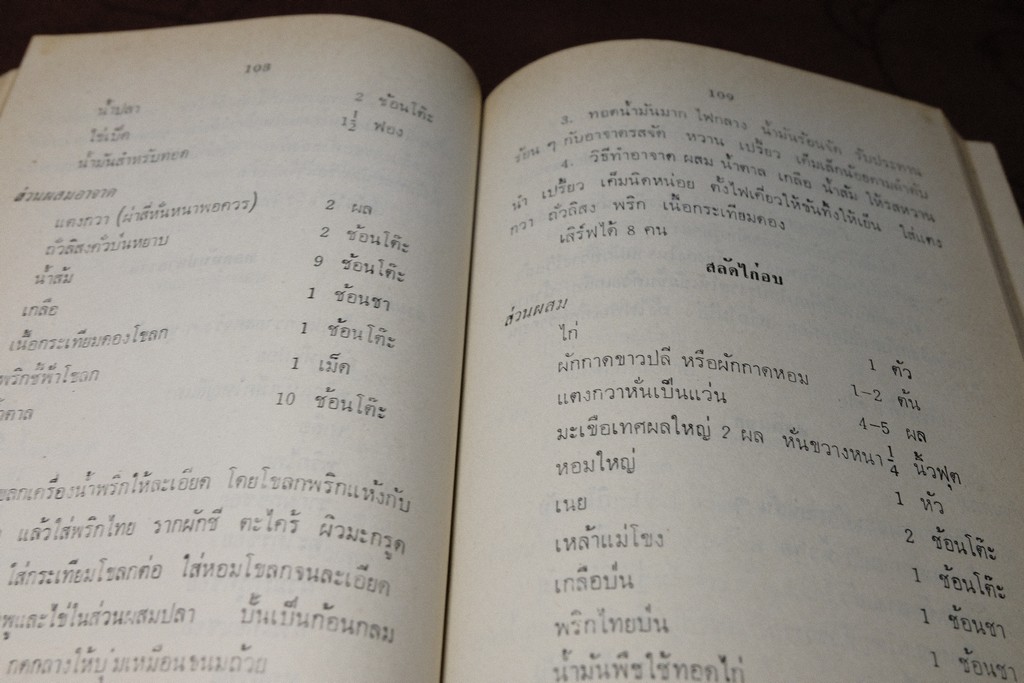 108
น้ำปลา 2 ช้อนโต๊ะ
ไข่เป็ด 1½ ฟอง
น้ำมันสำหรับทอด
ส่วนผสมอาจาด
แตงกวา (ผ่าสี่หั่นหนาพอควร) 2 ผล
ถั่วลิสงคั่วบ่นหยาบ 2 ช้อนโต๊ะ
น้ำส้ม 9 ช้อนโต๊ะ
เกลือ 1 ช้อนชา
เนื้อกระเทียมดองโขลก 1 ช้อนโต๊ะ
พริกชี้ฟ้าโขลก 1 เม็ด
10 ช้อนโต๊ะ
เครื่องน้ำพริกให้ละเอียด โดยโขลกพริกแห้งกับ
แล้วใส่พริกไทย รากผักชี ตะไคร้ ผิวมะกรูด
ใส่กระเทียมโขลกต่อ ใส่หอมโขลกจนละเอียด
และไข่ในส่วนผสมปลา ปั้นเป็นก้อนกลม
กดกลางให้บุ๋มเหมือนขนมถ้วย
109
3. ทอดน้ำมันมาก ไฟกลาง น้ำมันร้อนจัด รับประทาน
ร้อน ๆ กับอาจาดรสจัด หวาน เปรี้ยว เค็มเล็กน้อยตามลำดับ
4. วิธีทำอาจาด ผสม น้ำตาล เกลือ น้ำส้ม ให้รสหวาน
นำ เปรี้ยว เค็มนิดหน่อย ตั้งไฟเคี่ยวให้ข้นทิ้งให้เย็น ใส่แตง
กวา ถั่วลิสง พริก เนื้อกระเทียมดอง
เสิร์ฟได้ 8 คน
สลัดไก่อบ
ส่วนผสม
ไก่ 1 ตัว
ผักกาดขาวปลี หรือผักกาดหอม 1–2 ต้น
แตงกวาหั่นเป็นแว่น 4–5 ผล
มะเขือเทศผลใหญ่ 2 ผล หั่นขวางหนา ¼ นิ้วฟุต
หอมใหญ่ 1 หัว
เนย 2 ช้อนโต๊ะ
เหล้าแม่โขง 1 ช้อนโต๊ะ
เกลือป่น 1 ช้อนชา
พริกไทยป่น 1 ช้อนชา
น้ำมันพืชใช้ทอดไก่